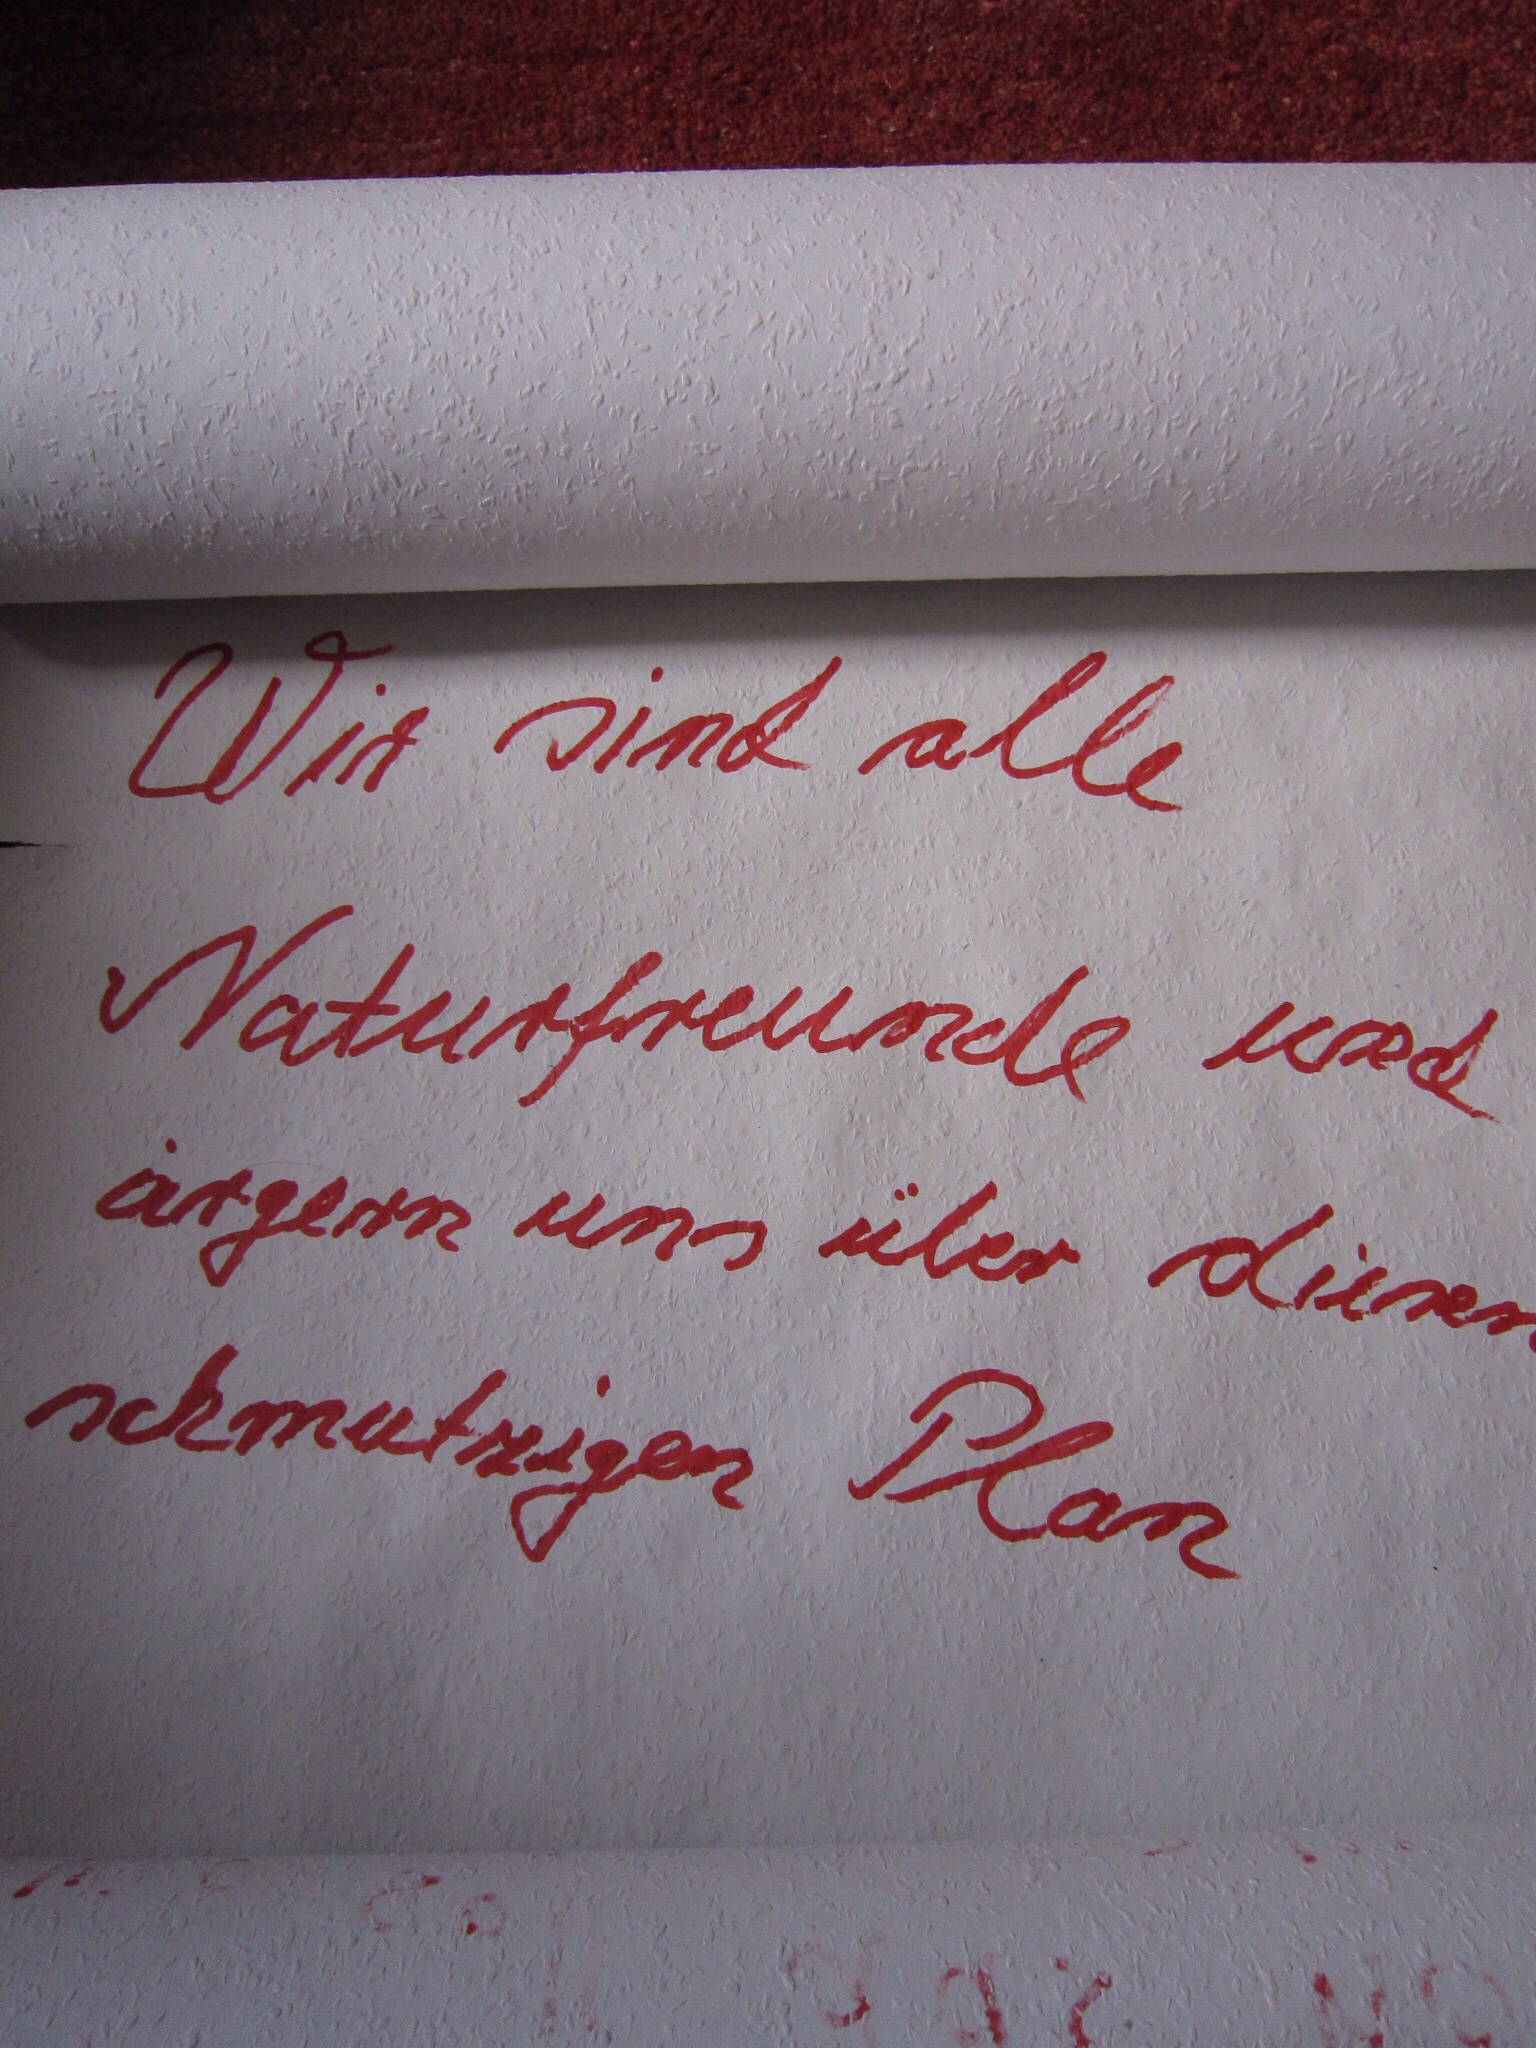 Wir sind alle
Naturfreunde und
ärgern uns über diesen
schmutzigen Plan